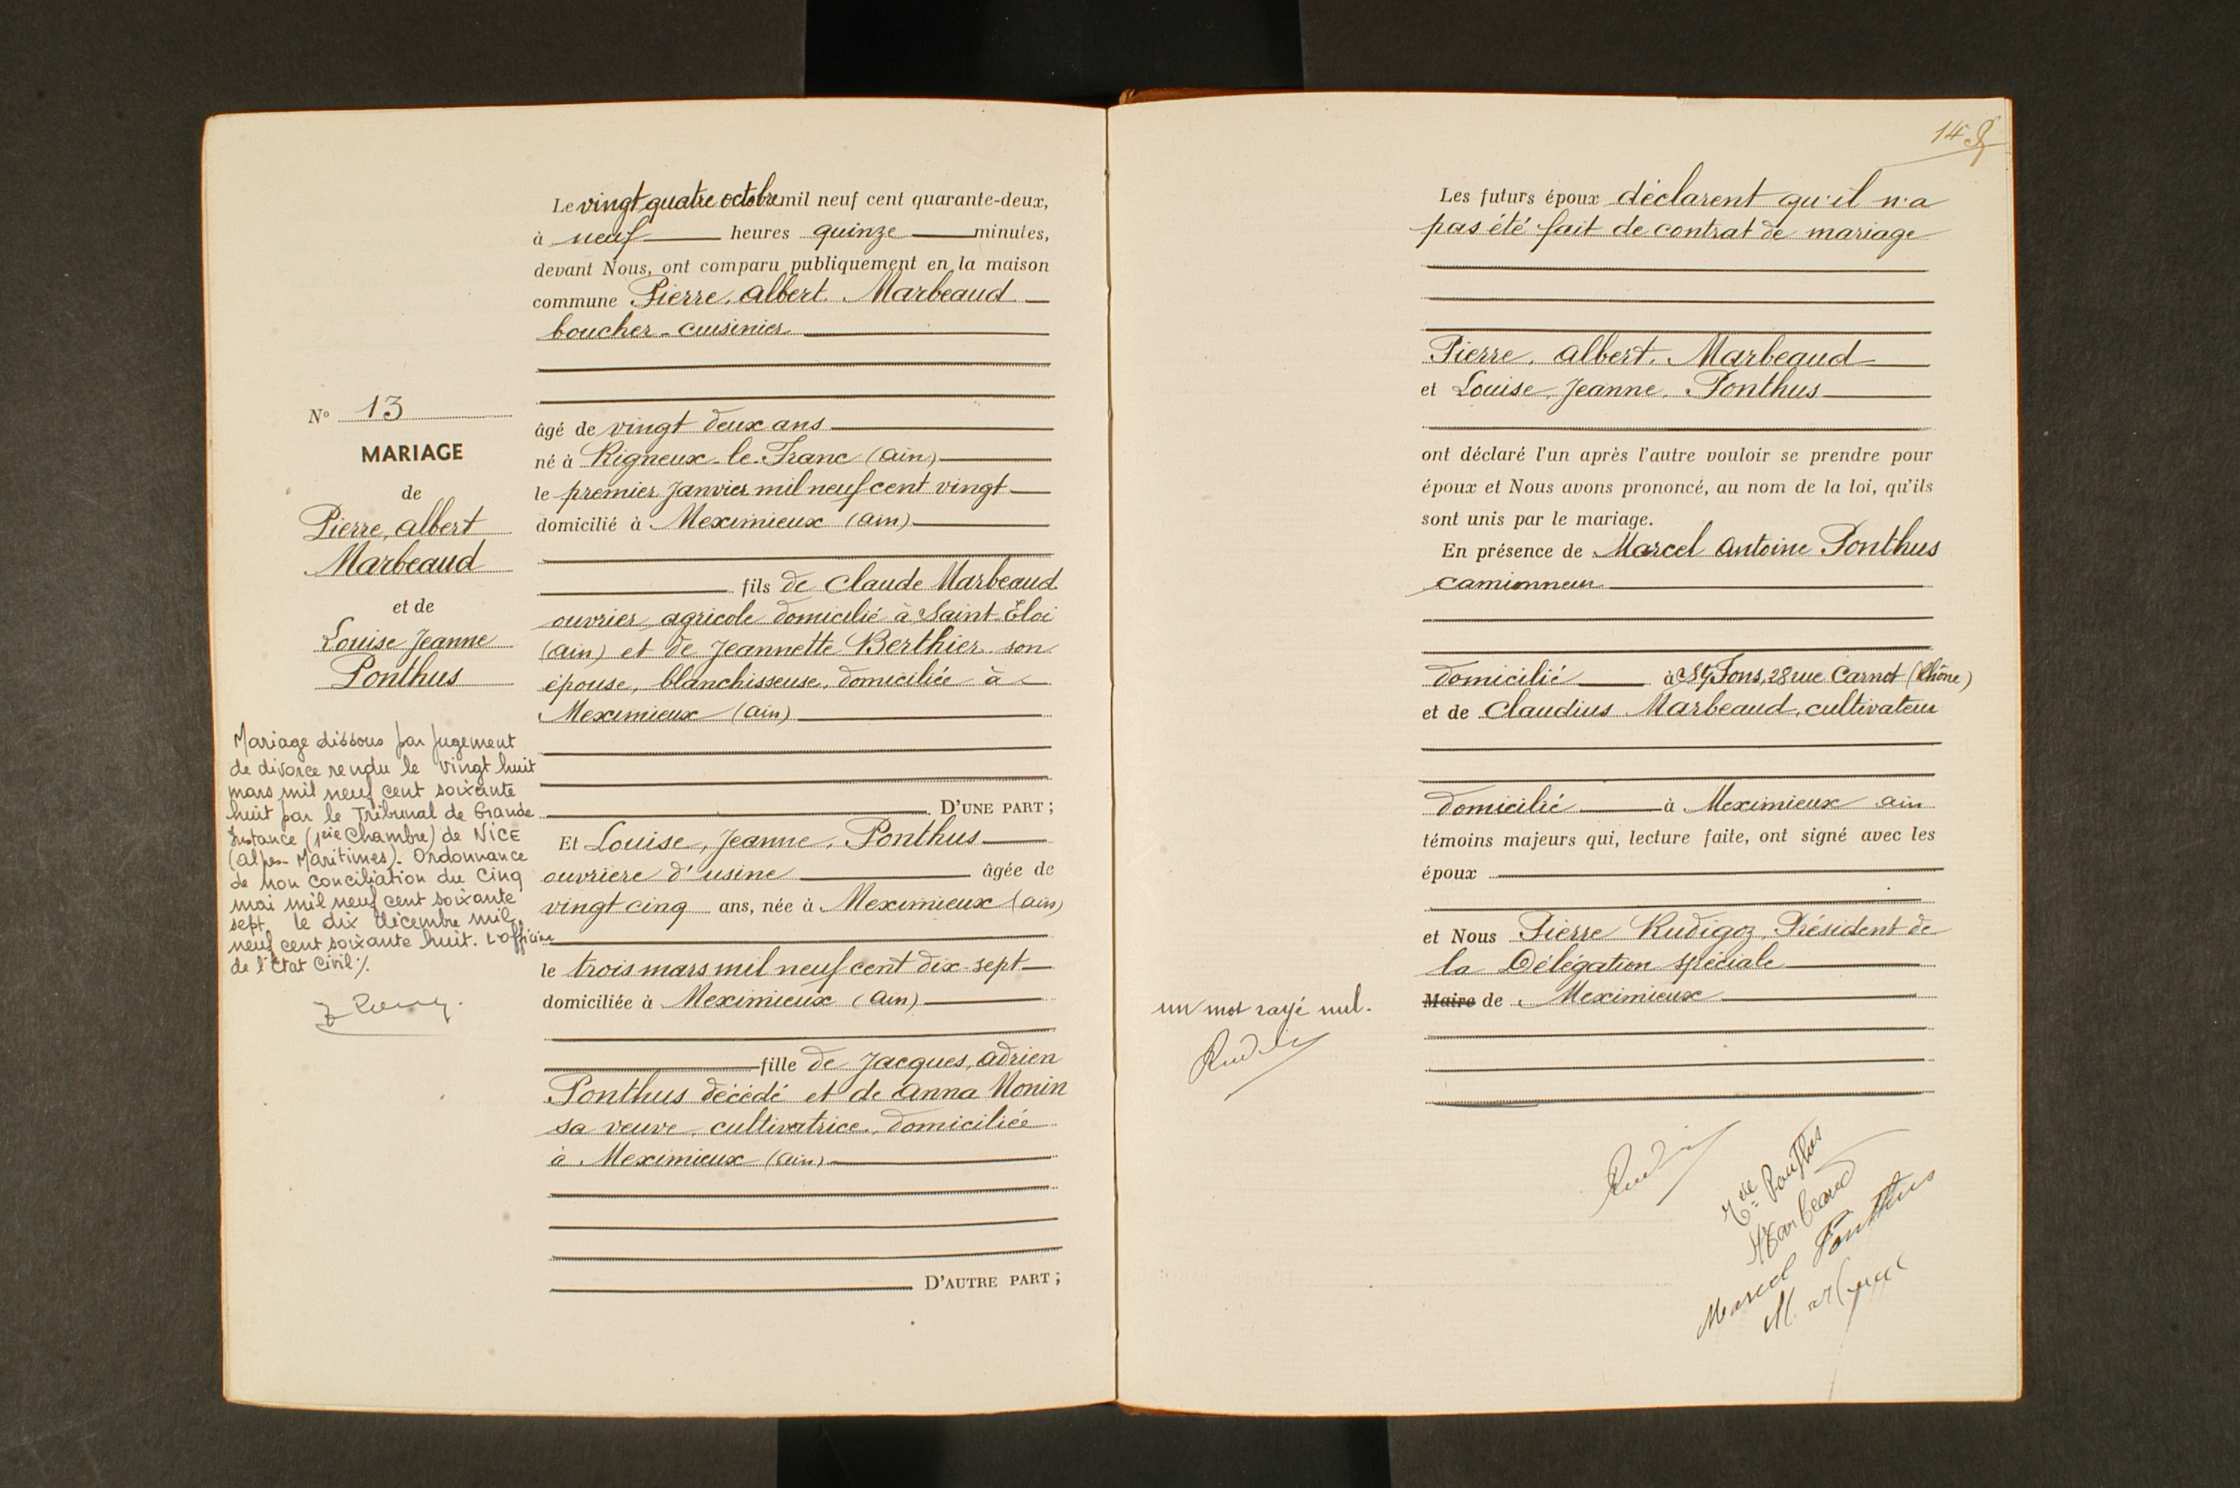 Le vingt quatre octobre mil neuf cent quarante-deux,
à neuf heures quinze minutes,
devant Nous, ont comparu publiquement en la maison
commune Pierre, Albert, Marbeaud
boucher-cuisinier
N° 13
MARIAGE
de
Pierre, Albert
Marbeaud
et de
Louise Jeanne
Ponthus
âgé de vingt deux ans
né à Rigneux-le-Franc (Ain)
le premier Janvier mil neuf cent vingt
domicilié à Meximieux (Ain)
fils de Claude Marbeaud
ouvrier agricole domicilié à Saint Eloi
(Ain) et de Jeannette Berthier son
épouse, blanchisseuse, domiciliée à
Meximieux (Ain)
D'UNE PART ;
Et Louise, Jeanne, Ponthus
ouvrière d'usine âgée de
vingt cinq ans, née à Meximieux (Ain)
le trois mars mil neuf cent dix-sept
domiciliée à Meximieux (Ain)
fille de Jacques, Adrien
Ponthus décédé et de Anna Monin
sa veuve, cultivatrice, domiciliée
à Meximieux (Ain)
D'AUTRE PART ;
Mariage dissous par jugement
de divorce rendu le vingt huit
mars mil neuf cent soixante
huit par le Tribunal de Grande
Instance (1ère Chambre) de NICE
(Alpes-Maritimes). Ordonnance
de non conciliation du cinq
mai mil neuf cent soixante
sept. le dix décembre mil
neuf cent soixante huit. L'officier
de l'Etat Civil ./.
14
Les futurs époux déclarent qu'il n'a
pas été fait de contrat de mariage
Pierre, Albert, Marbeaud
et Louise, Jeanne, Ponthus
ont déclaré l'un après l'autre vouloir se prendre pour
époux et Nous avons prononcé, au nom de la loi, qu'ils
sont unis par le mariage.
En présence de Marcel Antoine Ponthus
camionneur
domicilié à St Fons, 28 rue Carnot (Rhône)
et de Claudius Marbeaud, cultivateur
domicilié à Meximieux Ain
témoins majeurs qui, lecture faite, ont signé avec les
époux
et Nous Pierre Rudigoz, Président de
la Délégation spéciale
Maire de Meximieux
un mot rayé nul.
Ponthus
Marbeaud
Marcel Ponthus